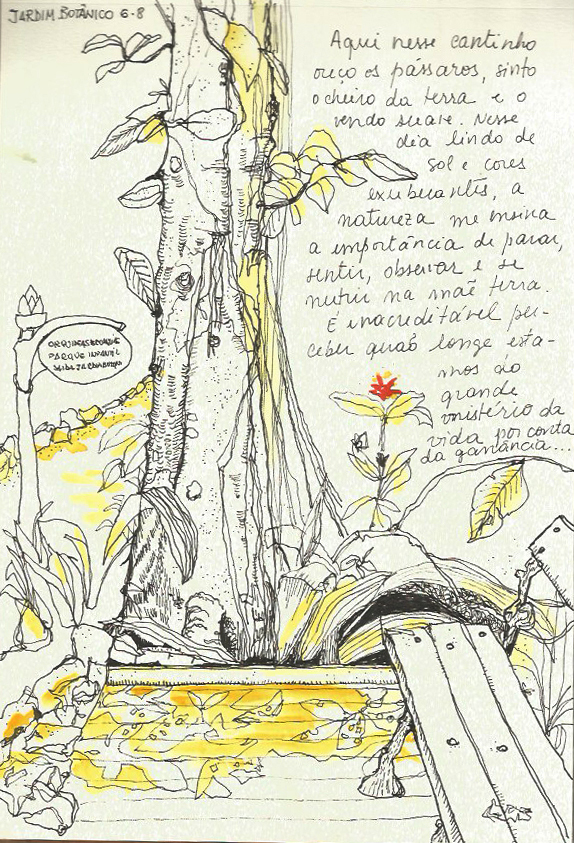 JARDIM BOTÂNICO 6-8
Aqui nesse cantinho
ouço os pássaros, sinto
o cheiro da terra e o
vendo suave. Nesse
dia lindo de
sol e cores
exuberantes, a
natureza me ensina
a importância de parar,
sentir, observar e se
nutrir na maẽ terra.
É inacreditável per-
ceber quaõ longe esta-
mos do
grande
mistério da
vida por conta
da ganância...
PARQUE INFANTIL